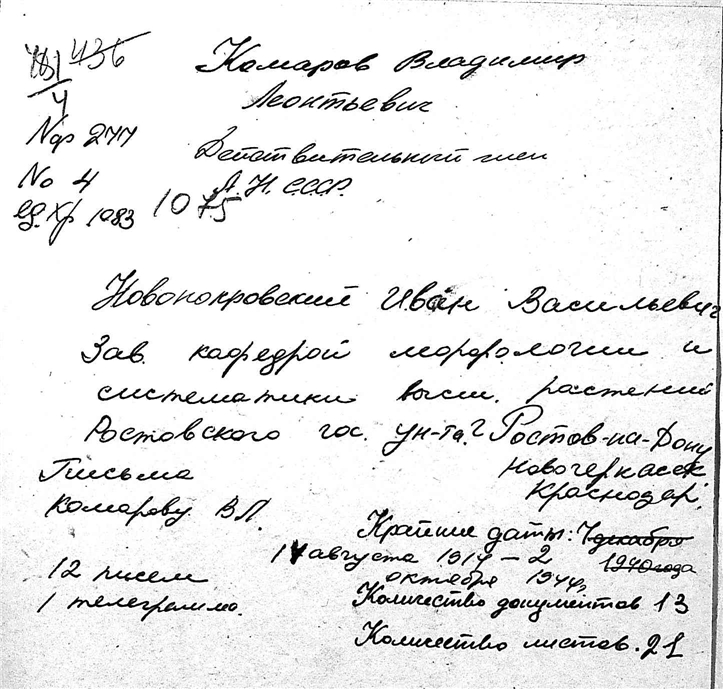 436
4
Комаров Владимир
Леонтьевич
Nф 277
Действительный член
No 4
А. Н. СССР.
ед. хр 1083 1075
Новопокровский Иван Васильевич
Зав. кафедрой морфологии и
систематики высш. растений
Ростовского гос. ун-та. г Ростов-на-Дону
Новочеркасск
Краснодар.
Письма
Комарову В Л.
Крайние даты: 7 декабря
1940 года
1 августа 1914 – 2
октября 1944г
12 писем
1 телеграмма.
Количество документов 13
Количество листов. 21